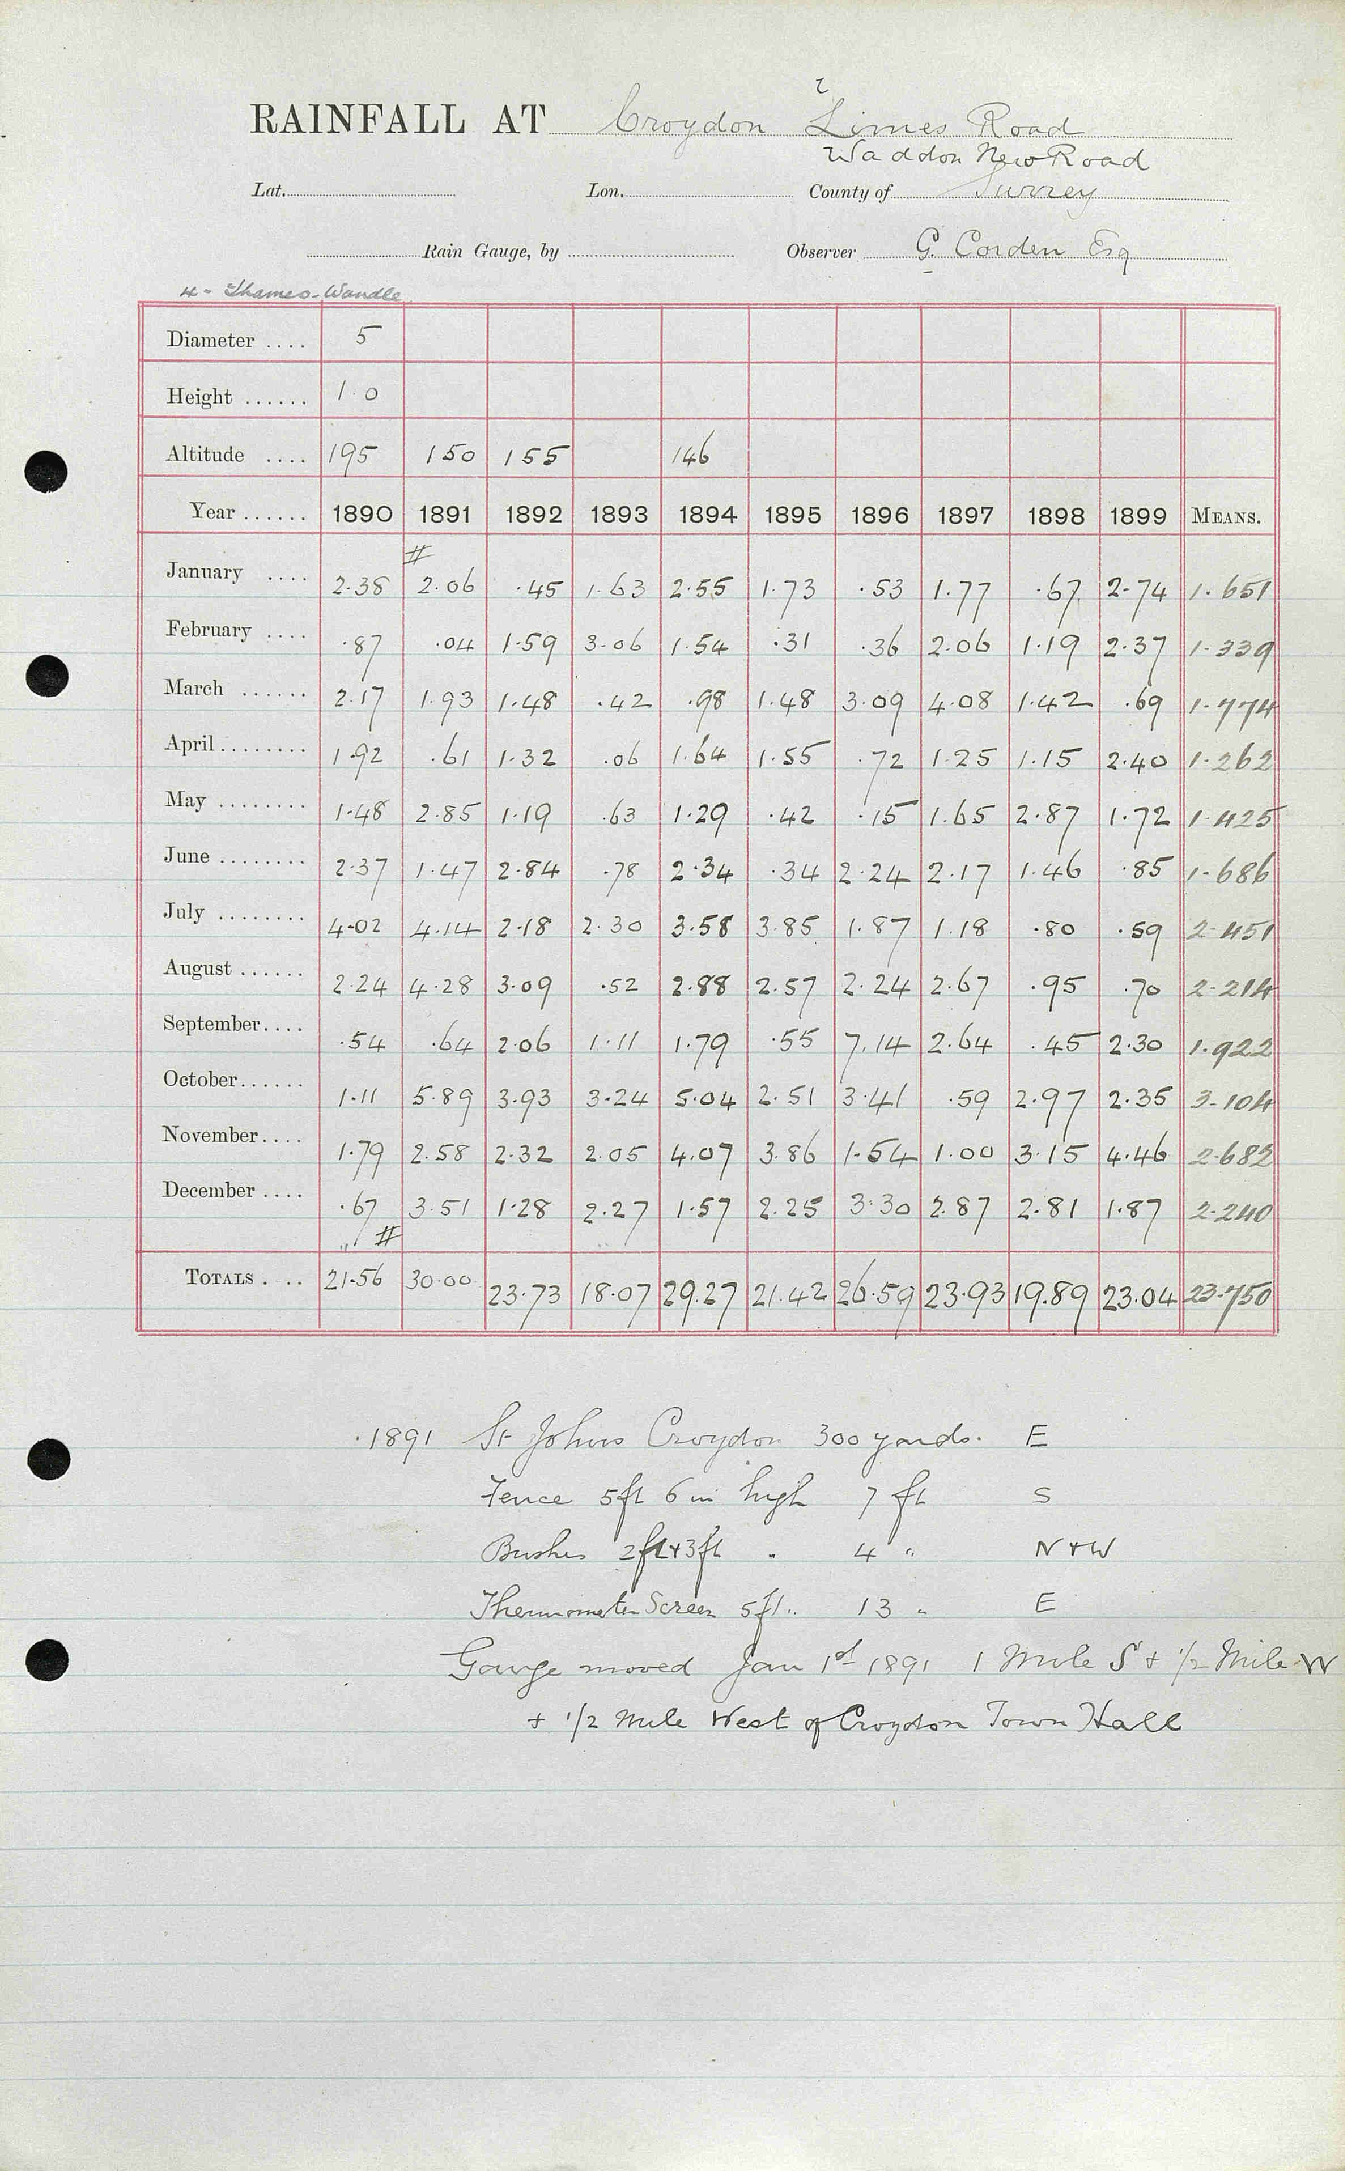 RAINFALL AT Croydon Limes Road
Waddon New Road
Lat. Lon. County of Surrey
Rain Gauge, by Observer G. Corden Esq
4 - Thames - Wandle
Diameter .... 5
Height ...... 1 0
Altitude .... 195 150 155 146
Year ...... 1890 1891 1892 1893 1894 1895 1896 1897 1898 1899 MEANS.
#
January .... 2.38 2.06 .45 1.63 2.55 1.73 .53 1.77 .67 2.74 1.651
February .... .87 .04 1.59 3.06 1.54 .31 .36 2.06 1.19 2.37 1.339
March ...... 2.17 1.93 1.48 .42 .98 1.48 3.09 4.08 1.42 .69 1.774
April ........ 1.92 .61 1.32 .06 1.64 1.55 .72 1.25 1.15 2.40 1.262
May ........ 1.48 2.85 1.19 .63 1.29 .42 .15 1.65 2.87 1.72 1.425
June ........ 2.37 1.47 2.84 .78 2.34 .34 2.24 2.17 1.46 .85 1.686
July ........ 4.02 4.14 2.18 2.30 3.58 3.85 1.87 1.18 .80 .59 2.451
August ...... 2.24 4.28 3.09 .52 2.88 2.57 2.24 2.67 .95 .70 2.214
September.... .54 .64 2.06 1.11 1.79 .55 7.14 2.64 .45 2.30 1.922
October...... 1.11 5.89 3.93 3.24 5.04 2.51 3.41 .59 2.97 2.35 3.104
November.... 1.79 2.58 2.32 2.05 4.07 3.86 1.54 1.00 3.15 4.46 2.682
December .... .67 3.51 1.28 2.27 1.57 2.25 3.30 2.87 2.81 1.87 2.240
#
TOTALS . .. 21.56 30.00 23.73 18.07 29.27 21.42 26.59 23.93 19.89 23.04 23.750
1891 St Johns Croydon 300 yards. E
Fence 5ft 6 in high 7 ft S
Bushes 2ft & 3ft " 4 " N & W
Thermometer Screen 5ft " 13 " E
Gauge moved Jan 1st 1891 1 Mile S & 1/2 Mile W
& 1/2 Mile West of Croydon Town Hall